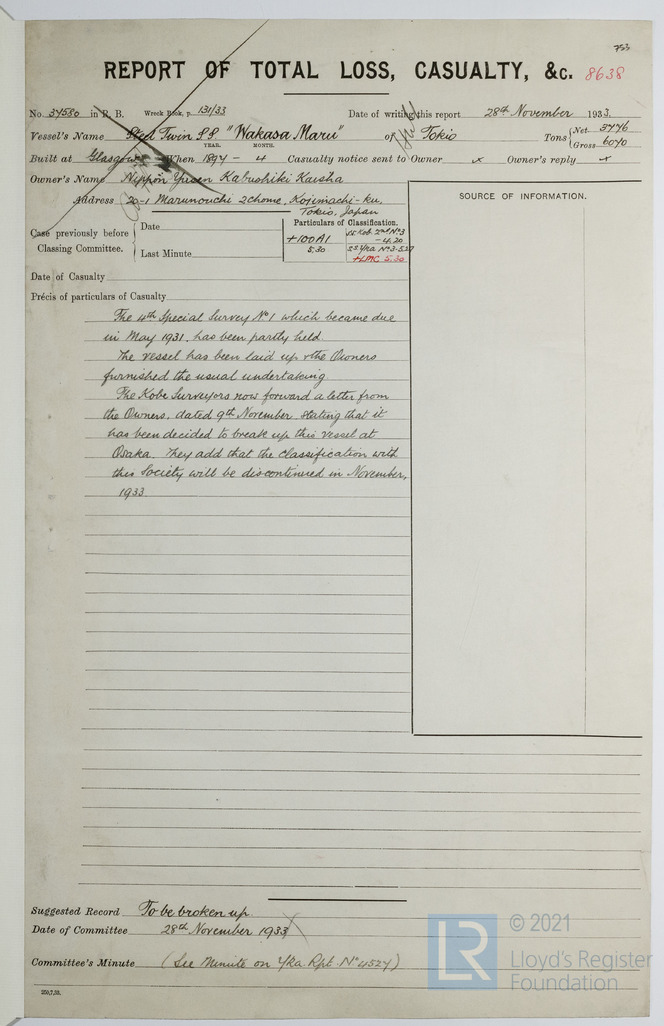 753
REPORT OF TOTAL LOSS, CASUALTY, &c. 8638
No. 34580 in R. B. Wreck Book, p. 131/33 Date of writing this report 28th November 1933.
Vessel's Name Steel Twin S.S. "Wakasa Maru" of Tokio Tons { Net 3776 Gross 6070
Built at Glasgow YEAR. MONTH. When 1897 - 4 Casualty notice sent to Owner x Owner's reply x
Owner's Name Nippon Yusen Kabushiki Kaisha
Address 20-1 Marunouchi 2chome, Kojimachi-ku,
Tokio, Japan
SOURCE OF INFORMATION.
Case previously before Classing Committee. { Date
Last Minute
Particulars of Classification.
+100A1
5.30
SS Kob. 2nd No 3
-4.20
SS Yka No 3-5.27
+LMC 5.30
Date of Casualty
Précis of particulars of Casualty
The 4th Special Survey No 1 which became due
in May 1931, has been partly held.
The vessel has been laid up & the Owners
furnished the usual undertaking.
The Kobe Surveyors now forward a letter from
the Owners, dated 9th November, stating that it
has been decided to break up this vessel at
Osaka. They add that the classification with
this Society will be discontinued in November,
1933
Suggested Record To be broken up.
Date of Committee 28th November 1933
Committee's Minute (See Minute on Yka. Rpt. No 4527)
250,7,32.
LR © 2021
Lloyd's Register
Foundation